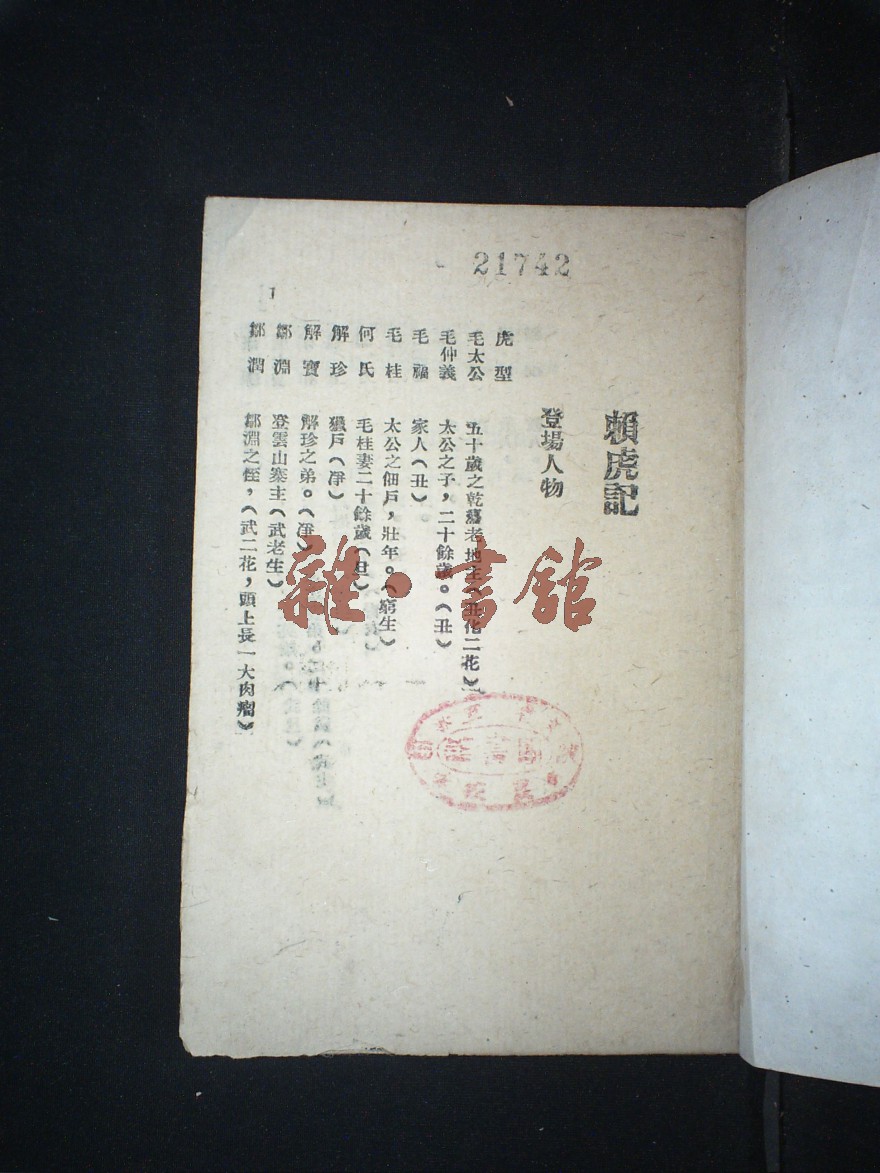 21742
賴虎記
登場人物
虎型
毛太公 五十歲之乾癟老地主(丑化二花)
毛仲義 太公之子,二十餘歲。(丑)
毛福 家人(丑)。
毛桂 太公之佃戶,壯年。(窮生)
何氏 毛桂妻二十餘歲(旦)
解珍 獵戶(凈)
解寶 解珍之弟。(凈)
鄒淵 登雲山寨主(武老生)
鄒潤 鄒淵之侄,(武二花,頭上長一大肉瘤)
1
雜·書館